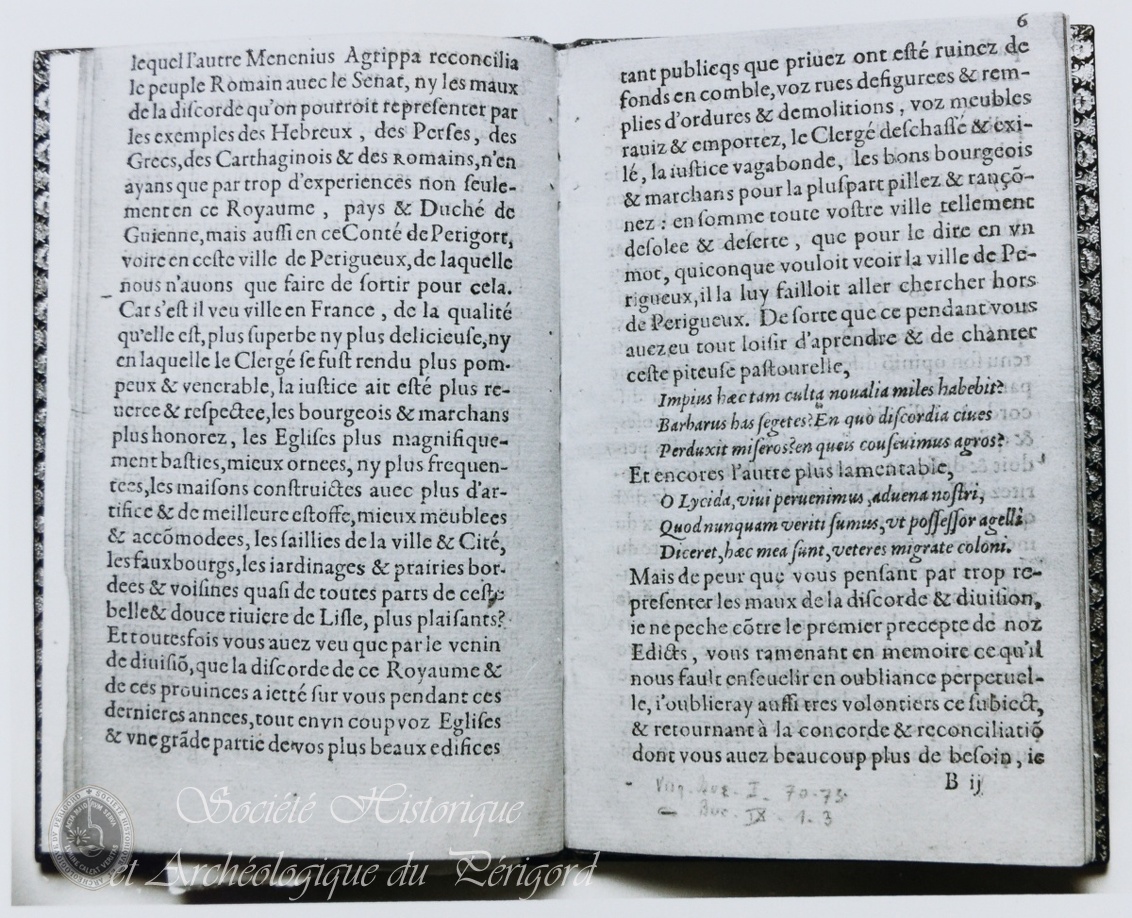 lequel l'autre Menenius Agrippa reconcilia
le peuple Romain auec le Senat, ny les maux
de la discorde qu'on pourroit representer par
les exemples des Hebreux , des Perses, des
Grecs, des Carthaginois & des Romains, n'en
ayans que par trop d'experiences non seule-
ment en ce Royaume , pays & Duché de
Guienne, mais aussi en ce Conté de Perigort,
voire en ceste ville de Perigueux, de laquelle
nous n'auons que faire de sortir pour cela.
Car s'est il veu ville en France , de la qualité
qu'elle est, plus superbe ny plus delicieuse, ny
en laquelle le Clergé se fust rendu plus pom-
peux & venerable, la iustice ait esté plus re-
uerce & respectee, les bourgeois & marchans
plus honorez, les Eglises plus magnifique-
ment basties, mieux ornees, ny plus frequen-
tees, les maisons construictes auec plus d'ar-
tifice & de meilleure estoffe, mieux meublees
& accõmodees, les saillies de la ville & Cité,
les fauxbourgs, les iardinages & prairies bor-
dees & voisines quasi de toutes parts de ceste
belle & douce riuiere de Lisle, plus plaisants?
Et toutesfois vous auez veu que par le venin
de diuisiõ, que la discorde de ce Royaume &
de ces prouinces a ietté sur vous pendant ces
dernieres annees, tout en vn coup voz Eglises
& vne grãde partie de vos plus beaux edifices
6
tant publicqs que priuez ont esté ruinez de
fonds en comble, voz rues defigurees & rem-
plies d'ordures & demolitions , voz meubles
rauiz & emportez, le Clergé deschassé & exi-
lé, la iustice vagabonde, les bons bourgeois
& marchans pour la pluspart pillez & rançõ-
nez : en somme toute vostre ville tellement
desolee & deserte , que pour le dire en vn
mot, quiconque vouloit veoir la ville de Pe-
rigueux, il la luy failloit aller chercher hors
de Perigueux. De sorte que ce pendant vous
auez eu tout loisir d'aprendre & de chanter
ceste piteuse pastourelle,
Impius hæc tam culta noualia miles habebit?
Barbarus has segetes? En quò discordia ciues
Perduxit miseros? en queis conseuimus agros?
Et encores l'autre plus lamentable,
O Lycida, viui peruenimus, aduena nostri,
Quod nunquam veriti sumus, vt possessor agelli
Diceret, hæc mea sunt, veteres migrate coloni.
Mais de peur que vous pensant par trop re-
presenter les maux de la discorde & diuision,
ie ne peche cõtre le premier precepte de noz
Edicts , vous ramenant en memoire ce qu'il
nous fault enseuelir en oubliance perpetuel-
le, i'oublieray aussi tres volontiers ce subiect,
& retournant à la concorde & reconciliatiõ
dont vous auez beaucoup plus de besoin , ie
B ij
- Virg. Buc. I. 70-73
- Buc. IX. 1. 3
Société Historique
et Archéologique du Périgord